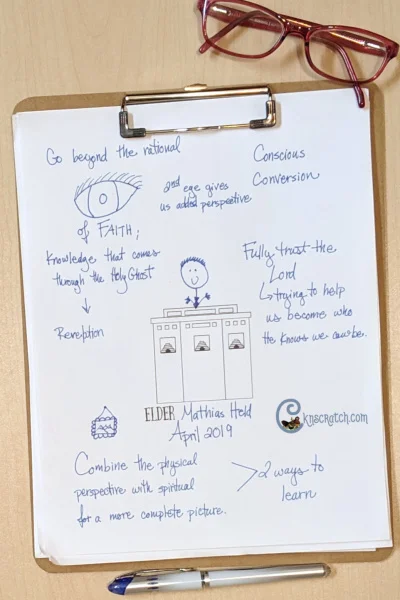 Go beyond the rational
Conscious
Conversion
2nd eye gives
us added perspective
of FAITH;
Knowledge that comes
through the Holy Ghost
Revelation
Fully trust the
Lord
↳trying to help
us become who
He knows we can be.
ELDER Mathias Held
April 2019
cknscratch.com
Combine the physical
perspective with spiritual
for a more complete picture.
>2 ways to
learn